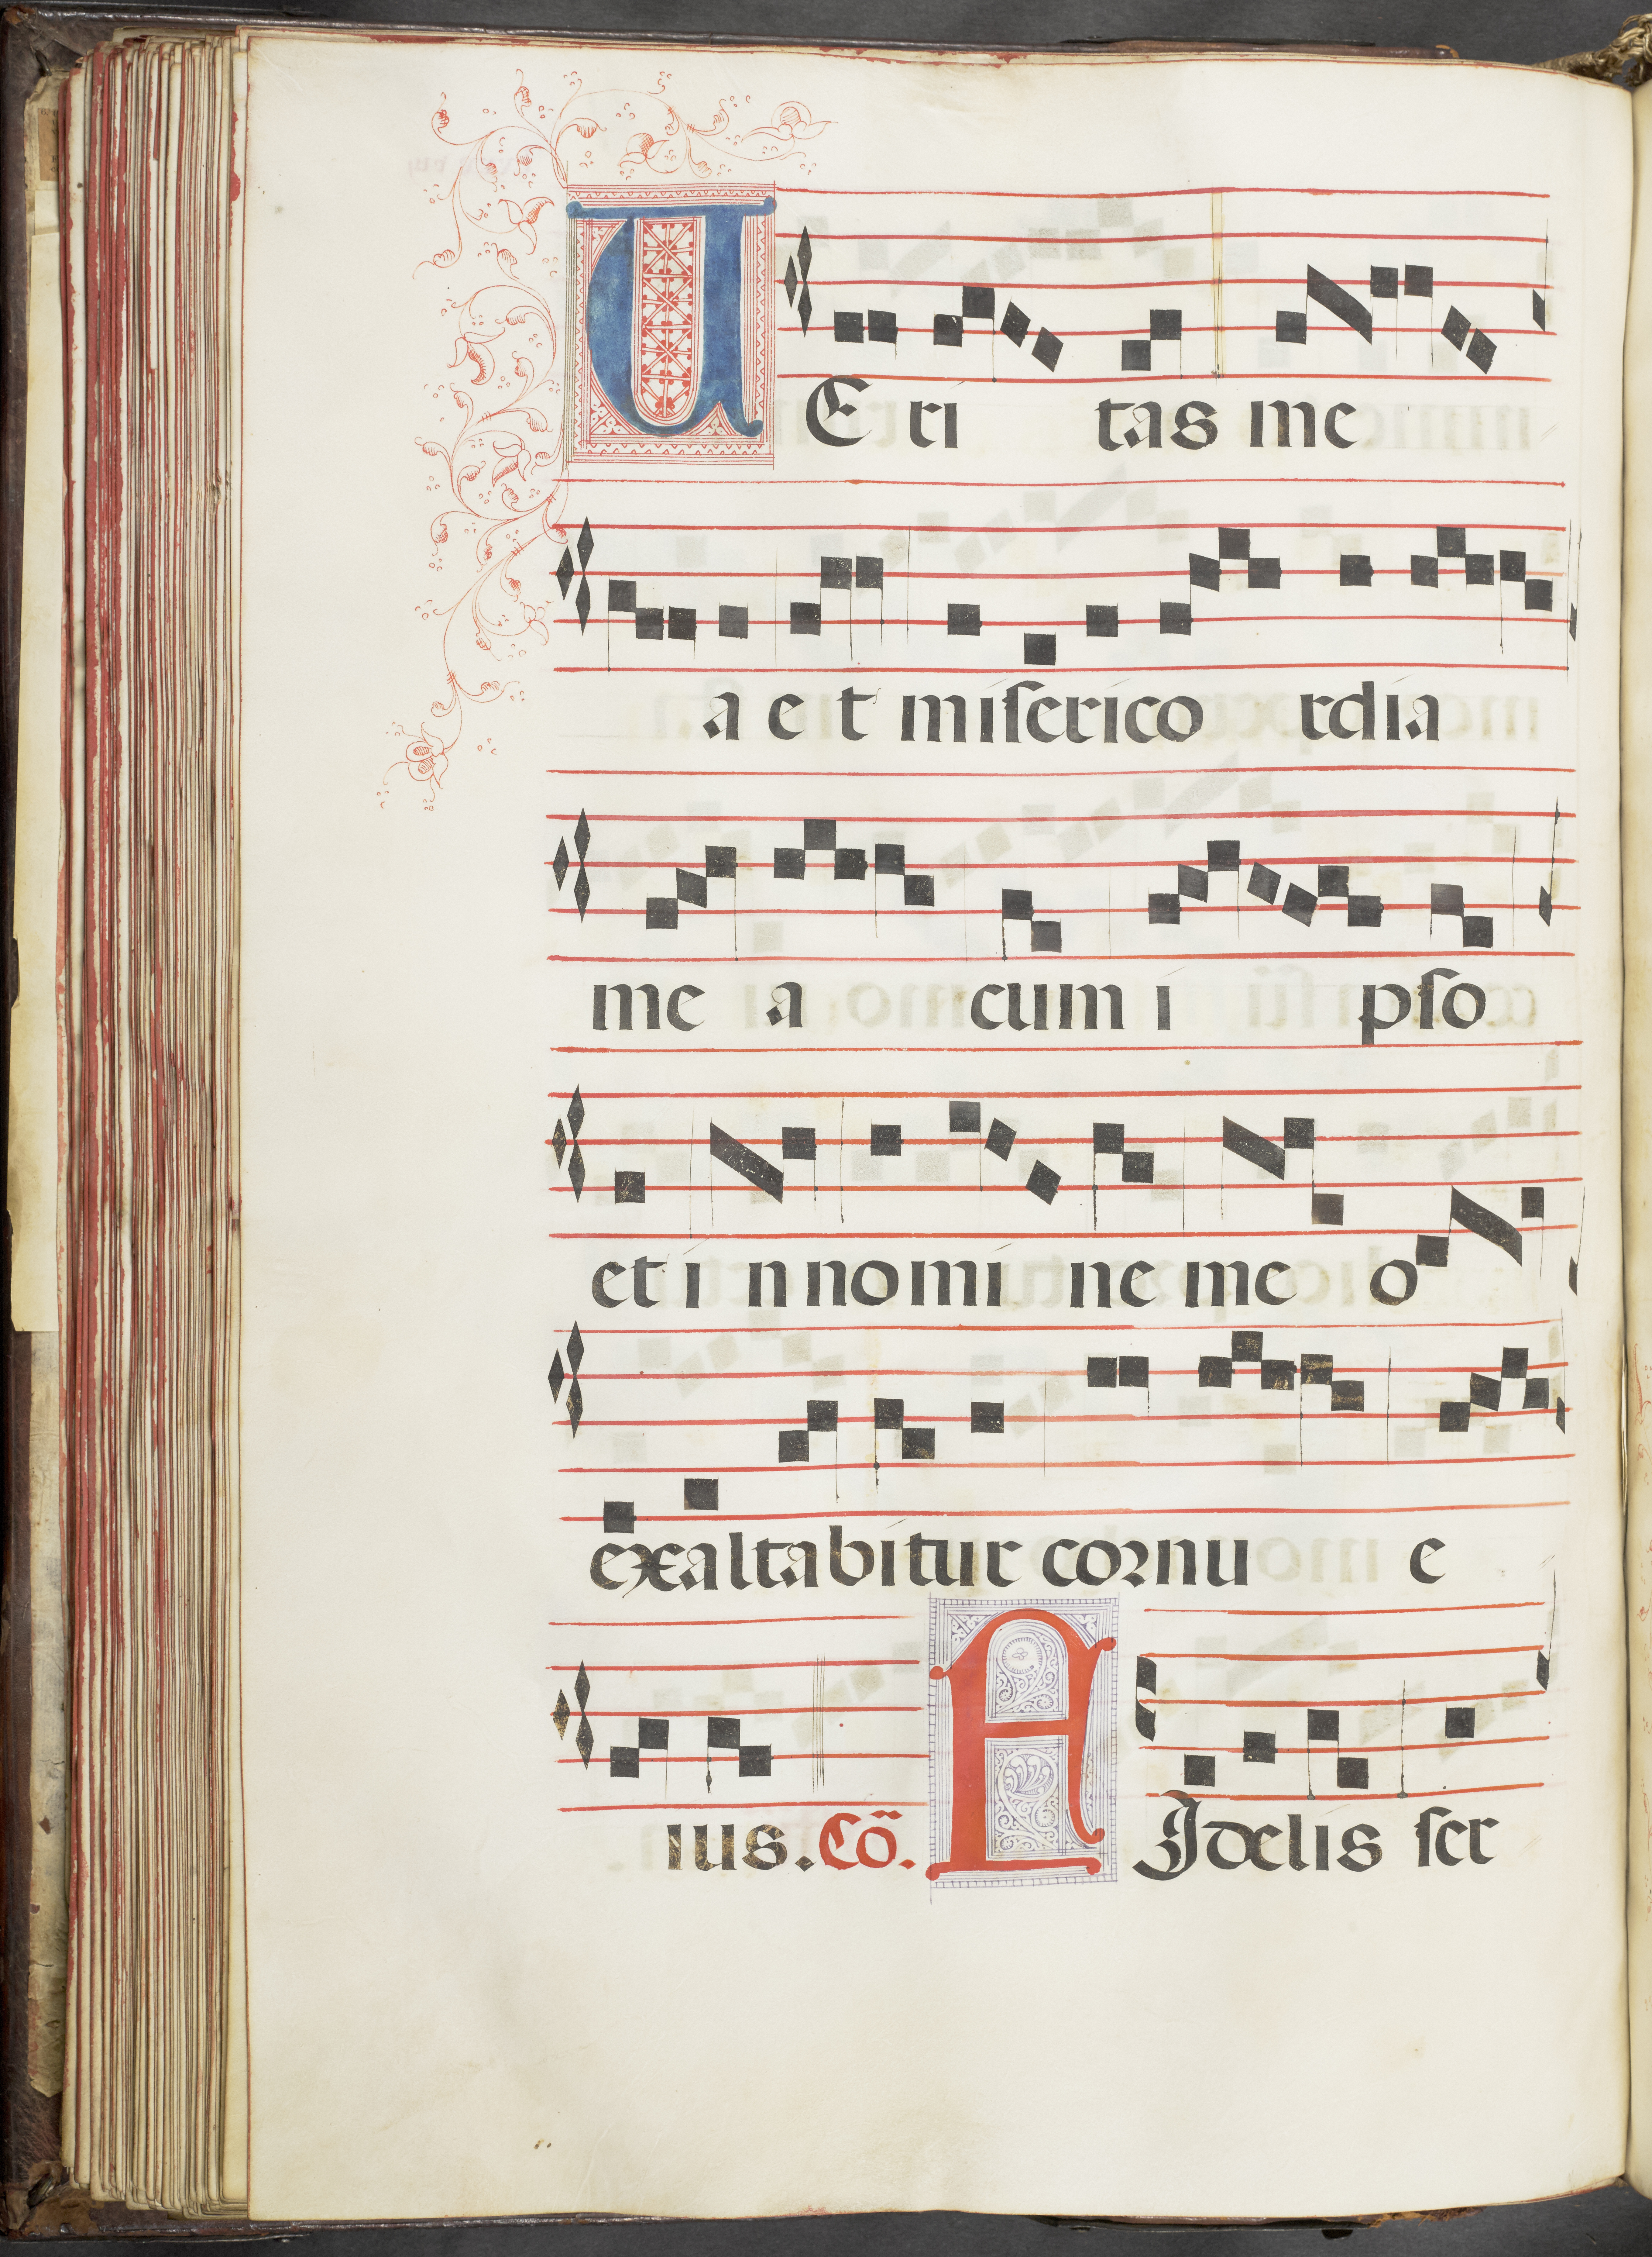 UEri tas me
a et miſerico rdia
me a cum i pſo
et i n nomi ne me o
exaltabitur cornu e
ius. Cõ. FIdelis ſer